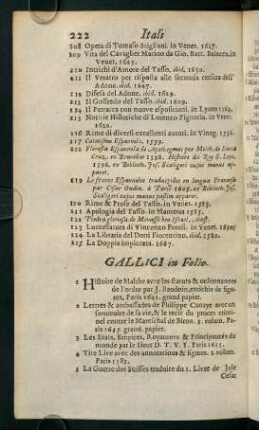 222 Itali
208 Opera di Tomaso Stigliani. in Venet. 1627.
209 Vita del Cavaglier Marino da Gio. Batt. Baiacca. in
Venet. 1625.
210 Intrichi d'Amore del Tasso. ibid. 1630.
211 Il Veratro per risposta alle seconda censura dell'
Adone. ibid. 1647.
212 Difesa del Adone. ibid. 1629.
213 Il Goffredo del Tasso. ibid. 1609.
214 Il Petrarca con nuove espositioni. in Lyone 1564.
215 Notitie Historiche di Lorenzo Pignoria. in Venet.
1620.
216 Rime di diversi excellenti autori. in Vineg. 1556.
217 Espannol. 1559.
218 Floresta Espannola de Apothegmas por Melch. de Santa
Cruz. en Bruxellas 1598. Historia do Rey S. Leys.
1596. ex Biblioth. Jos. Scaligeri cujus manus ap-
paret.
219 Espannoles traduzidos en lengua Francesa
par Cesar Oudin. à Paris 1605. ex Biblioth. Jos.
Scaligeri cujus manus passim apparet.
220 Rime & Prose del Tasso. in Venet. 1583.
221 Apologia del Tasso. in Mantoua 1585.
222 de Menasseh ben Israel.
223 di Vincenzo Ferrii. in Venet.
224 La Libraria del Doni Fiorentino. ibid. 1580.
225 La Doppia impiccata. 1667.
GALLICI in Folio.
1 Histoire de Malthe avec les statuts & ordonnances
de l'ordre par J. Baudoin, enrichie de figu-
res. Paris 1643. grand papier.
2 Lettres & ambassades de Philippe Canaye avec un
sommaire de sa vie, & le recit du proces crimi-
nel contre le Mareschal de Biron. 3. volum. Pa-
ris 1635. grand. papier.
3 Les Etats, Empires, Royaumes & Principautés du
monde par le Sieur D. T. V. Y. Paris 1615.
4 Tite Live avec des annotations & figures. 2. volum.
Paris 1583.
5 La Guerre des Suisses traduite du 1. Livre de Jule
Cesar